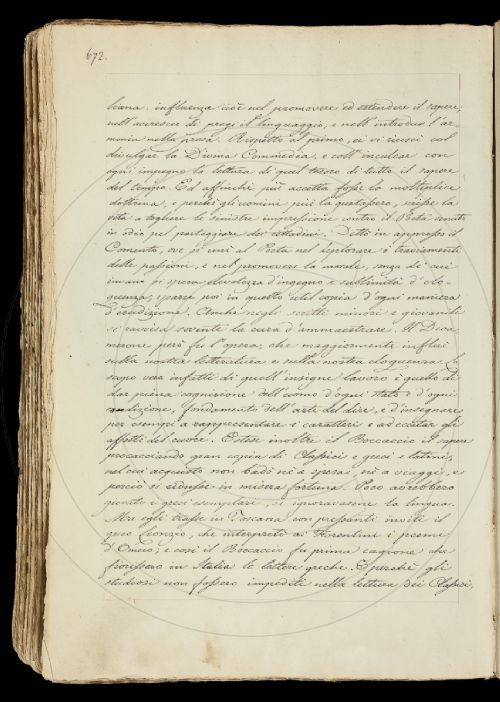 672.
liana: influenza cioè nel promovere ed estendere il sapere,
nell'accrescer di pregi il linguaggio, e nell'introdur l'ar-
monia nella prosa. Rispetto al primo, ei vi riescì col
divulgar la Divina Commedia, e coll'inculcar con
ogni impegno la lettura di quel tesoro di tutto il sapere
del tempo. Ed affinchè più accetta fosse la moltiplice
dottrina, e perchè gli uomini più la gustassero, scrisse la
vita a togliere le sinistre impressioni contro il Poeta venuto
in odio nel parteggiare dei cittadini. Dettò in appresso il
Comento, ove si unì al Poeta nel deplorare i traviamenti
delle passioni, e nel promovere la morale, senza di cui
invano si spera elevatezza d'ingegno e sublimità d'elo-
quenza; sparse poi in questo util copia d'ogni maniera
d'erudizione. Anche negli scritti minori e giovanili
si ravvisa sovente la cura d'ammaestrare. Il Deca-
merone però fu l'opera, che maggiormente influì
sulla nostra letteratura e sulla nostra eloquenza. Lo
scopo vero infatti di quell'insigne lavoro è quello di
dar piena cognizione dell'uomo d'ogni stato e d'ogni
condizione, fondamento dell'arte del dire, e d'insegnare
per esempi a rappresentare i caratteri e ad eccitar gli
affetti del cuore. Estese inoltre il Boccaccio il sapere
procacciando gran copia di Classici e greci e latini,
nel cui acquisto non badò nè a spese, nè a viaggi, e
perciò si ridusse in misera fortuna. Poco avrebbero
giovato i greci esemplari, se ignoravasene la lingua.
Ma egli trasse in Toscana con pressanti inviti il
greco Leonzio, che interpretò ai Fiorentini i poemi
d'Omero; e così il Boccaccio fu prima cagione che
fiorissero in Italia le lettere greche. E perchè gli
studiosi non fossero impediti nella lettura dei Classici,